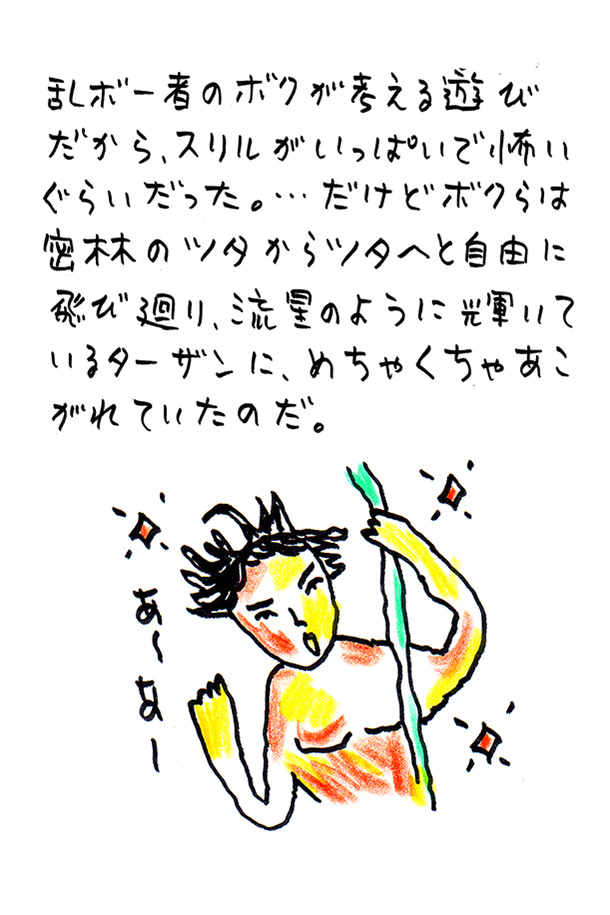 乱ボー者のボクが考える遊び
だから、スリルがいっぱいで怖い
ぐらいだった。…だけどボクらは
密林のツタからツタへと自由に
飛び廻り、流星のように光輝いて
いるターザンに、めちゃくちゃあこ
がれていたのだ。
あ〜あー